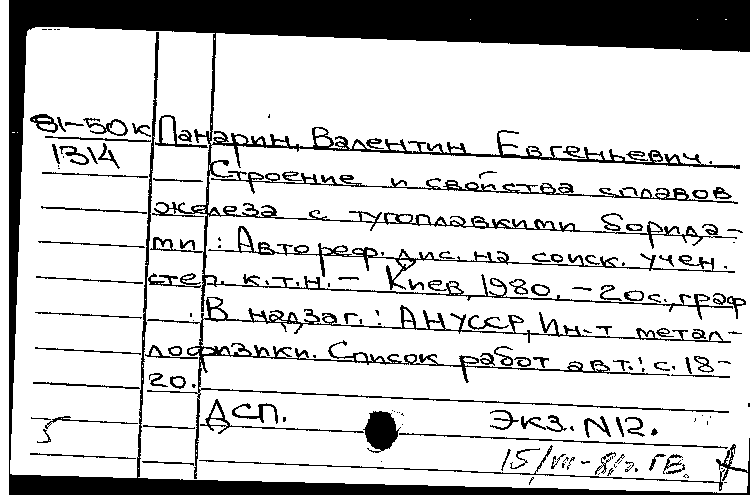 81-50к Панарин, Валентин Евгеньевич.
1314 Строение и свойства сплавов
железа с тугоплавкими борида-
ми : Автореф. дис. на соиск. учен.
степ. к.т.н. – Киев, 1980. – 20с., граф
. В надзаг.: АН УССР, Ин-т метал-
лофизики. Список работ авт.: с. 18-
20.
ДСП. Экз. N12.
5 15/VII-81г. ГВ.